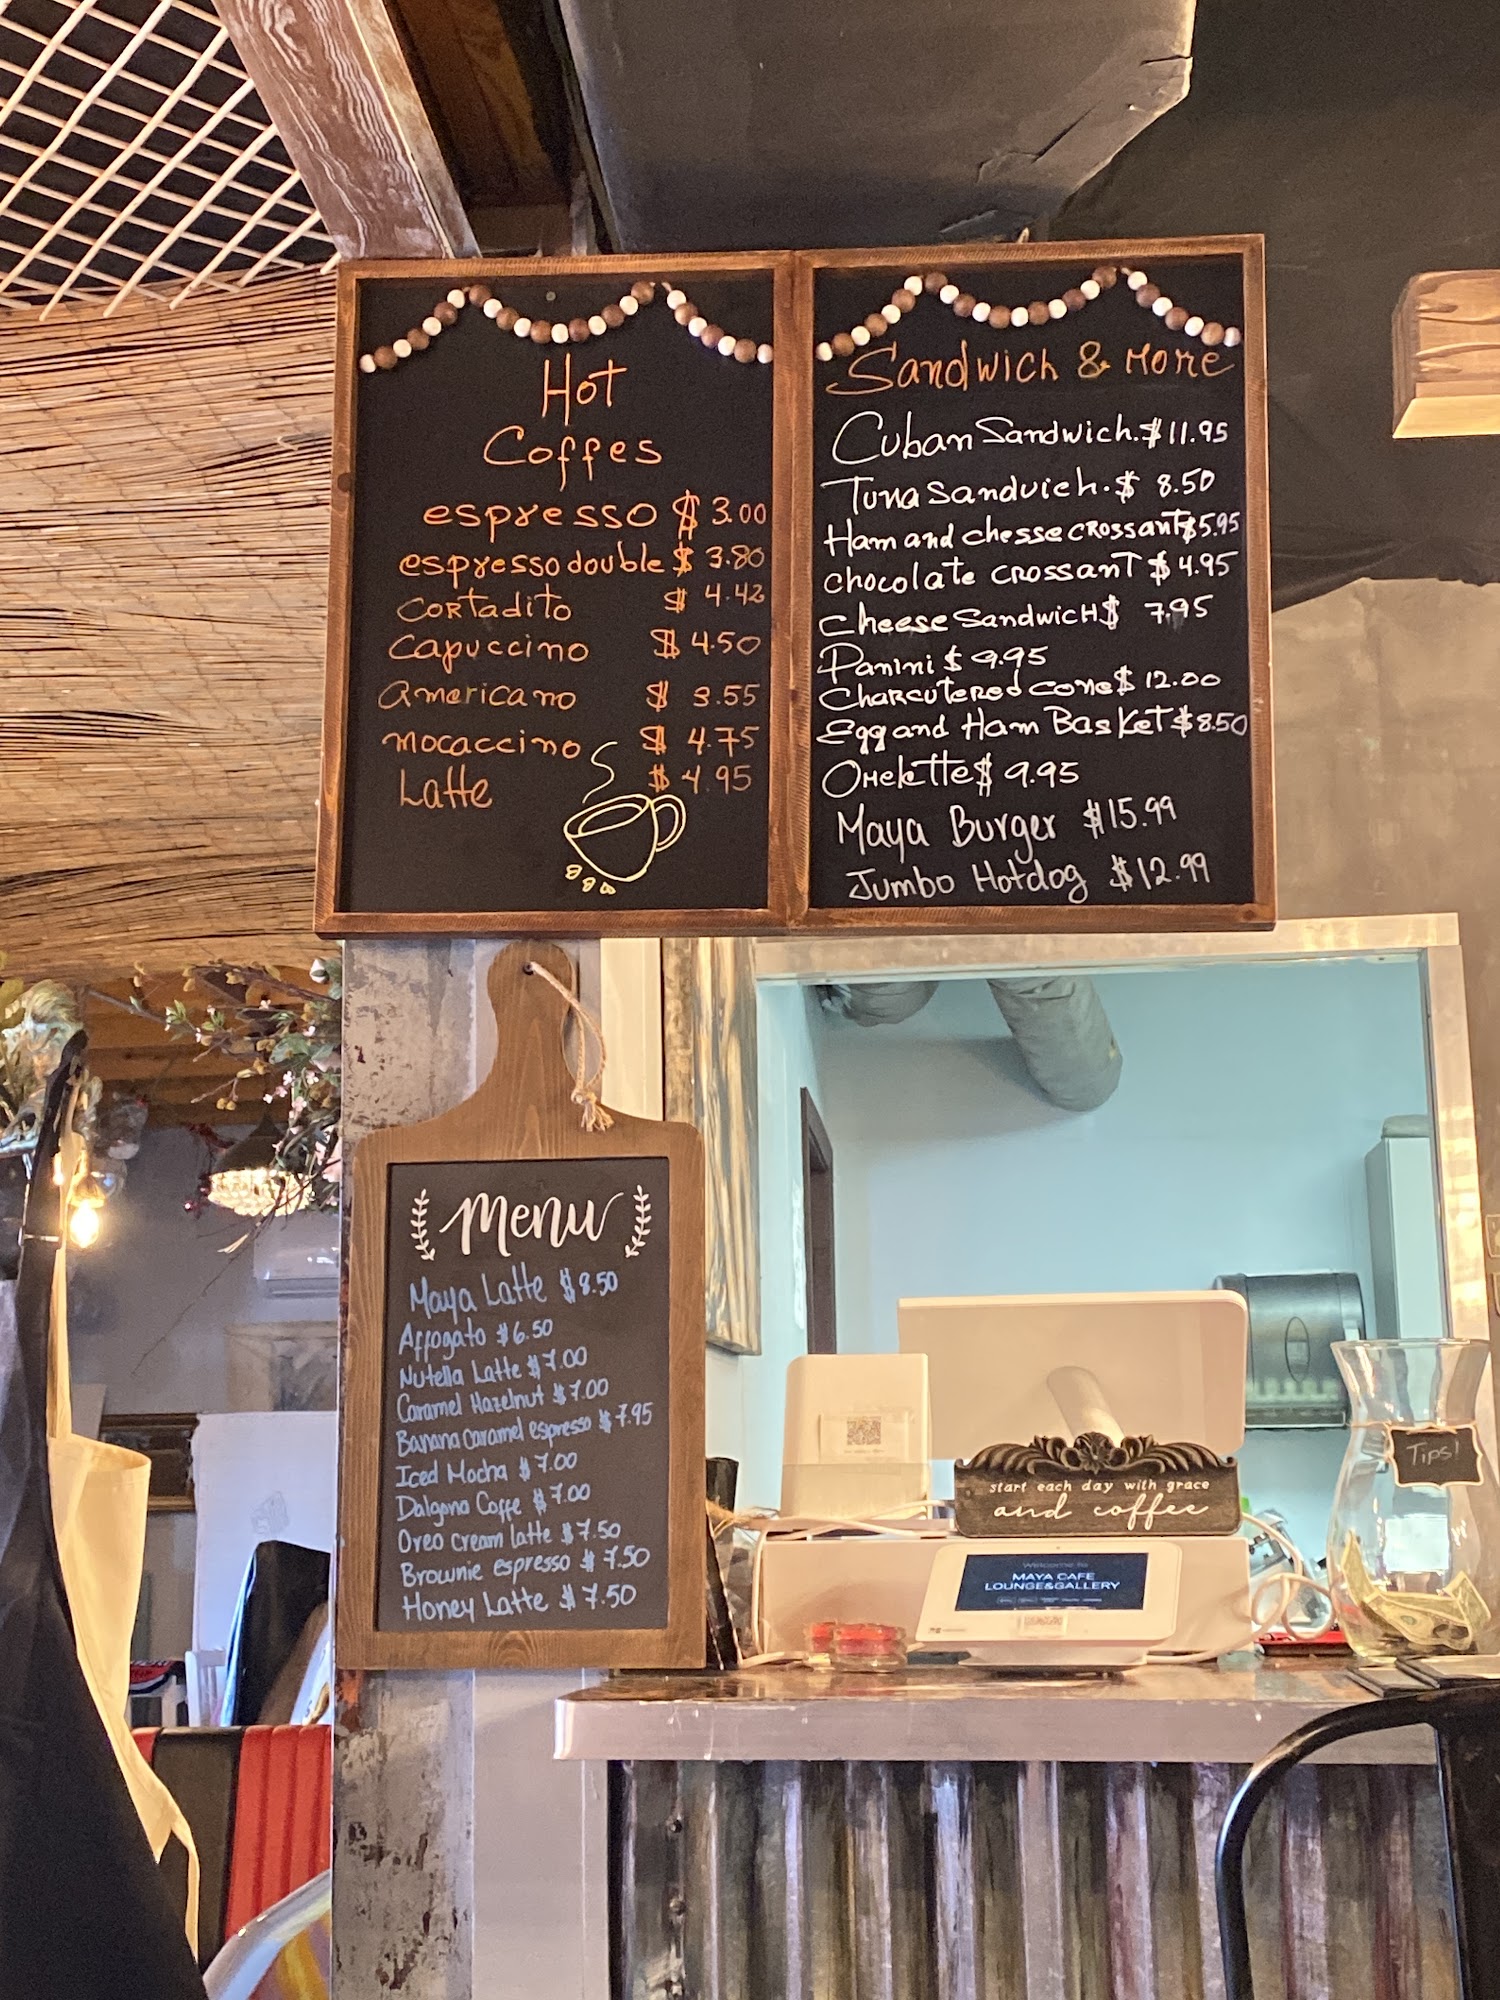 Hot
Coffes
espresso $ 3.00
espresso double $ 3.80
cortadito $ 4.42
Capuccino $ 4.50
americano $ 3.55
mocaccino $ 4.75
Latte $ 4.95
Sandwich & More
Cuban Sandwich. $ 11.95
Tuna Sandwich. $ 8.50
Ham and chesse crossant $5.95
chocolate crossant $ 4.95
cheese Sandwich $ 7.95
Panini $ 9.95
Charcutered cone $ 12.00
Egg and Ham Basket $ 8.50
Omelette $ 9.95
Maya Burger $15.99
Jumbo Hotdog $12.99
Menu
Maya Latte $8.50
Affogato $6.50
Nutella Latte $7.00
Caramel Hazelnut $7.00
Banana caramel espresso $7.95
Iced Mocha $7.00
Dalgona Coffe $7.00
Oreo cream latte $7.50
Brownie espresso $7.50
Honey Latte $7.50
start each day with grace
and coffee
Tips!
Welcome to
MAYA CAFE
LOUNGE&GALLERY